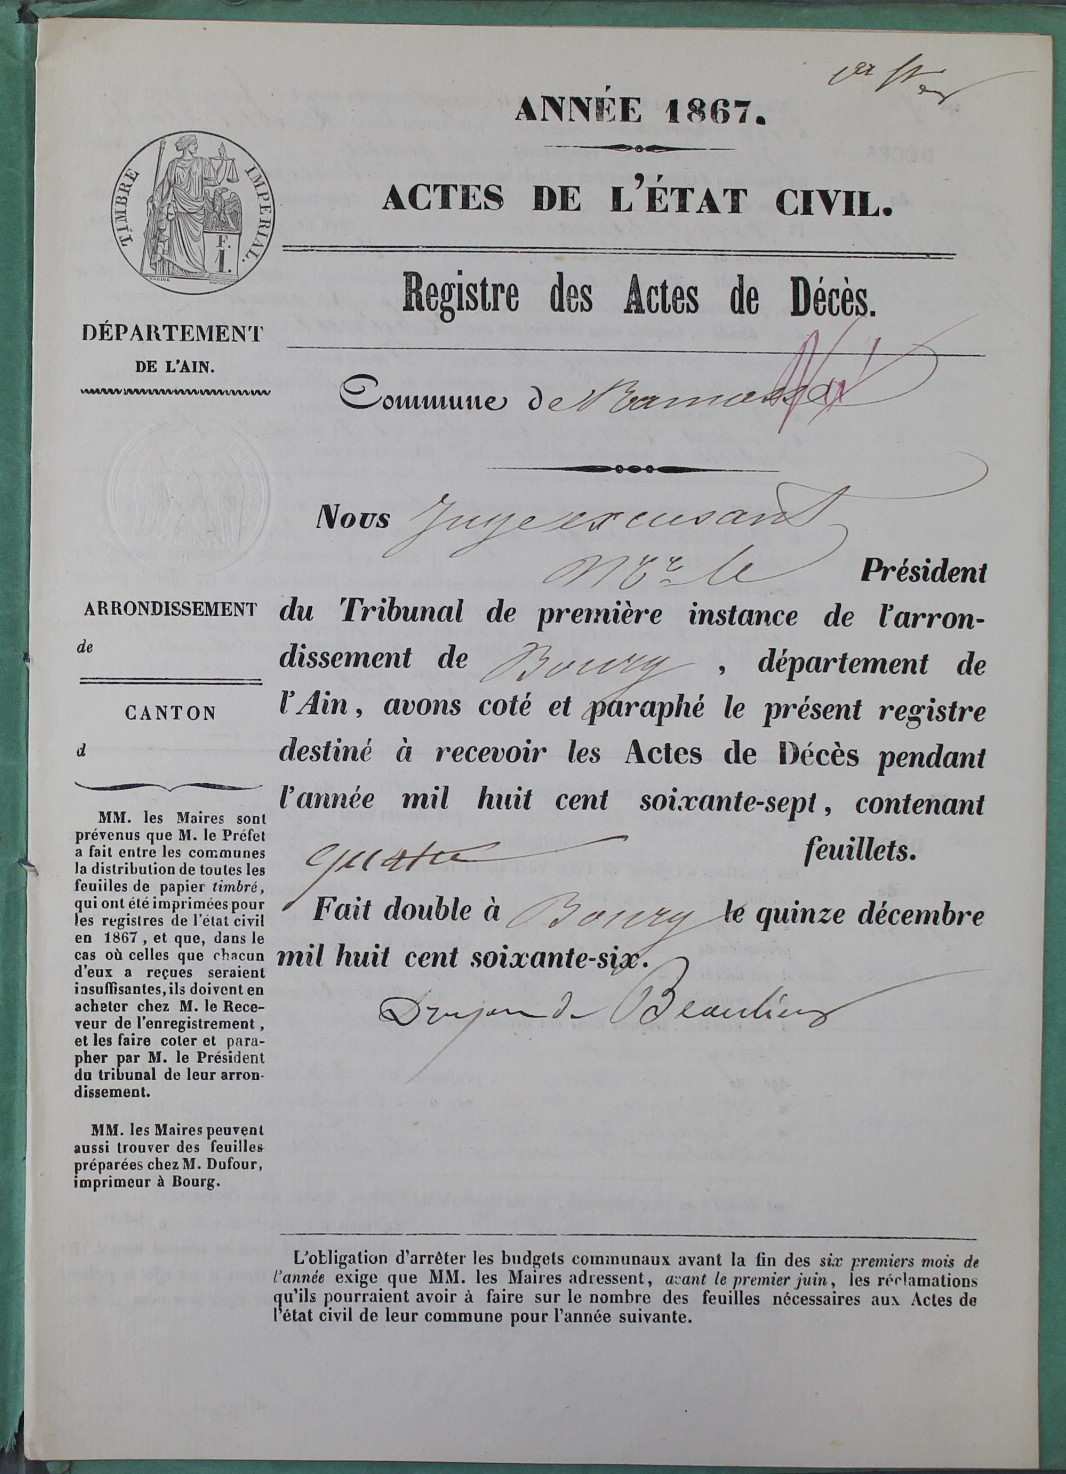 ANNÉE 1867.
ACTES DE L'ÉTAT CIVIL.
TIMBRE IMPÉRIAL.
F.
1.
Registre des Actes de Décès.
DÉPARTEMENT
DE L'AIN.
Commune de Ramasse
Nous Juge excusant
Mr le Président
ARRONDISSEMENT
de
CANTON
d
du Tribunal de première instance de l'arron-
dissement de Bourg, département de
l'Ain, avons coté et paraphé le présent registre
destiné à recevoir les Actes de Décès pendant
l'année mil huit cent soixante-sept, contenant
quatre feuillets.
Fait double à Bourg le quinze décembre
mil huit cent soixante-six.
Drujon de Beaulieu
MM. les Maires sont
prévenus que M. le Préfet
a fait entre les communes
la distribution de toutes les
feuilles de papier timbré,
qui ont été imprimées pour
les registres de l'état civil
en 1867, et que, dans le
cas où celles que chacun
d'eux a reçues seraient
insuffisantes, ils doivent en
acheter chez M. le Rece-
veur de l'enregistrement,
et les faire coter et para-
pher par M. le Président
du tribunal de leur arron-
dissement.
MM. les Maires peuvent
aussi trouver des feuilles
préparées chez M. Dufour,
imprimeur à Bourg.
L'obligation d'arrêter les budgets communaux avant la fin des six premiers mois de
l'année exige que MM. les Maires adressent, avant le premier juin, les réclamations
qu'ils pourraient avoir à faire sur le nombre des feuilles nécessaires aux Actes de
l'état civil de leur commune pour l'année suivante.